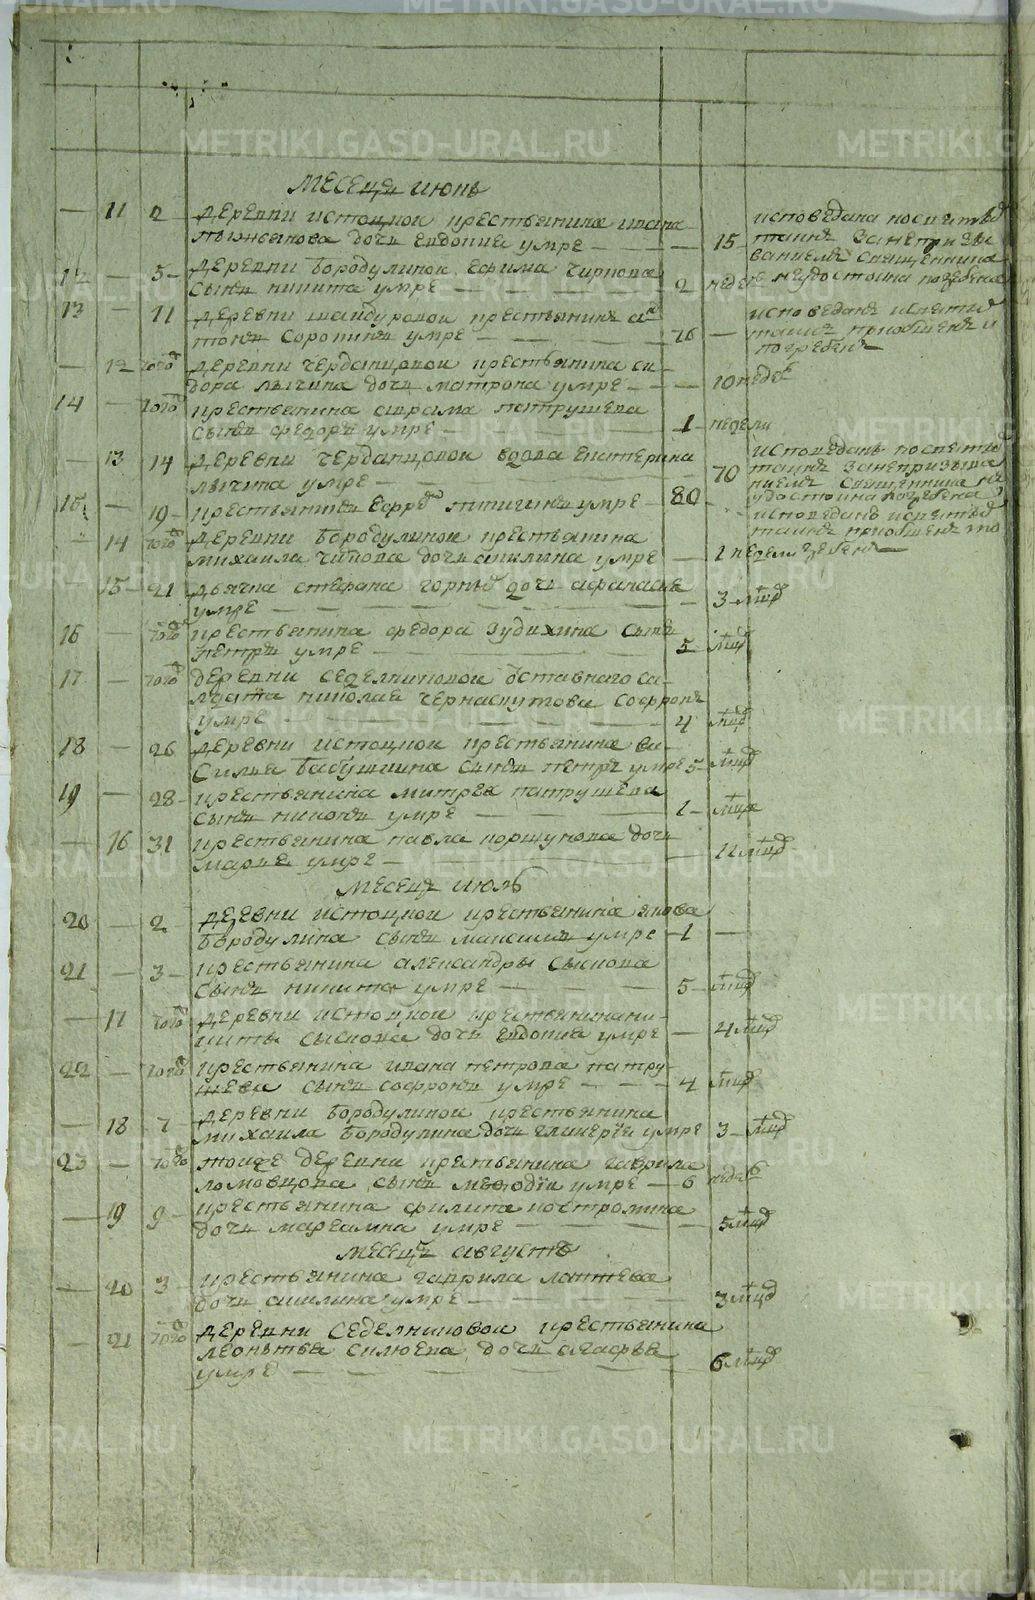 месецъ июнь
— 11 2 деревни истоцкои крестьянина ивана
пьянкова дочь евдокиа умре — — — 15
исповедана
таинъ за непризы
ваниемъ священника
не удостоина погребена
12 — 5 деревни бородулинои ефима чиркова
сынъ никита умре — — — 2 недел
13 — 11 деревни шайдуровои крестьянинъ ан
тонъ сорокинъ умре — — — 76 —
исповеданъ и святы
таинъ приобщенъ и
погребенъ
— 12 того деревни чердынцовои крестьянина си
дора лычина дочь матрона умре — — — 10 недел
14 — того крестьянина абрама патрушева
сынъ федоръ умре — — — 1 недели
— 13 14 деревни чердынцовои вдова екатерина
лычина умре — — — 70
исповеданъ
таинъ за непризыва
ниемъ священника не
удостоина погребена
15 — 19 крестьянинъ умре — 80 —
исповеданъ и святы
таинъ приобщенъ
погребенъ
— 14 того деревни бородулинои крестьянина
михаила дочь акилина умре — 1 недели
— 15 21 дьячка стефана дочь афанасья
умре — — — 3 мцд
16 — того крестьянина федора зудихина сынъ
петръ умре — — — 5 мцд
17 — того деревни седелниковои отставнаго са
лдата николая черноскутова софронъ
умре — — — 4 мцд
18 — 26 деревни истоцкои крестьянина ва
силья бабушкина сынъ петръ умре 5 мцд
19 — 28 крестьянина митрея патрушева
сынъ никонъ умре — — — 1 мцд
— 16 31 крестьянина павла коршунова дочь
марья умре — — — 11 мцд
месецъ июль
20 — 2 деревни истоцкои крестьянина якова
бородулина сынъ максимъ умре — 1 —
21 — 3 крестьянина александры сыскова
сынъ никита умре — — — 5 мцд
— 17 того деревни истоцкои крестьянина ни
киты сыскова дочь евдокиа умре — 4 мцд
22 — того крестьянина ивана петрова патру
шева сынъ софронъ умре — — — 4 мцд
— 18 7 деревни бородулинои крестьянина
михаила бородулина дочь гликерїя умре 3 мцд
23 — того тоиже деревни крестьянина гаврила
ломовцова сынъ мефодїи умре — 6 недел
— 19 9 крестьянина филипа костромина
дочь мареамна умре — — — 5 мцд
месецъ августъ
— 20 3 крестьянина гаврила лаптева
дочь акилина умре — — — 3 мцд
— 21 того деревни седелниковои крестьянина
леонтья силуева дочь агафья
умре — — — 6 мцд
METRIKI.GASO-URAL.RU